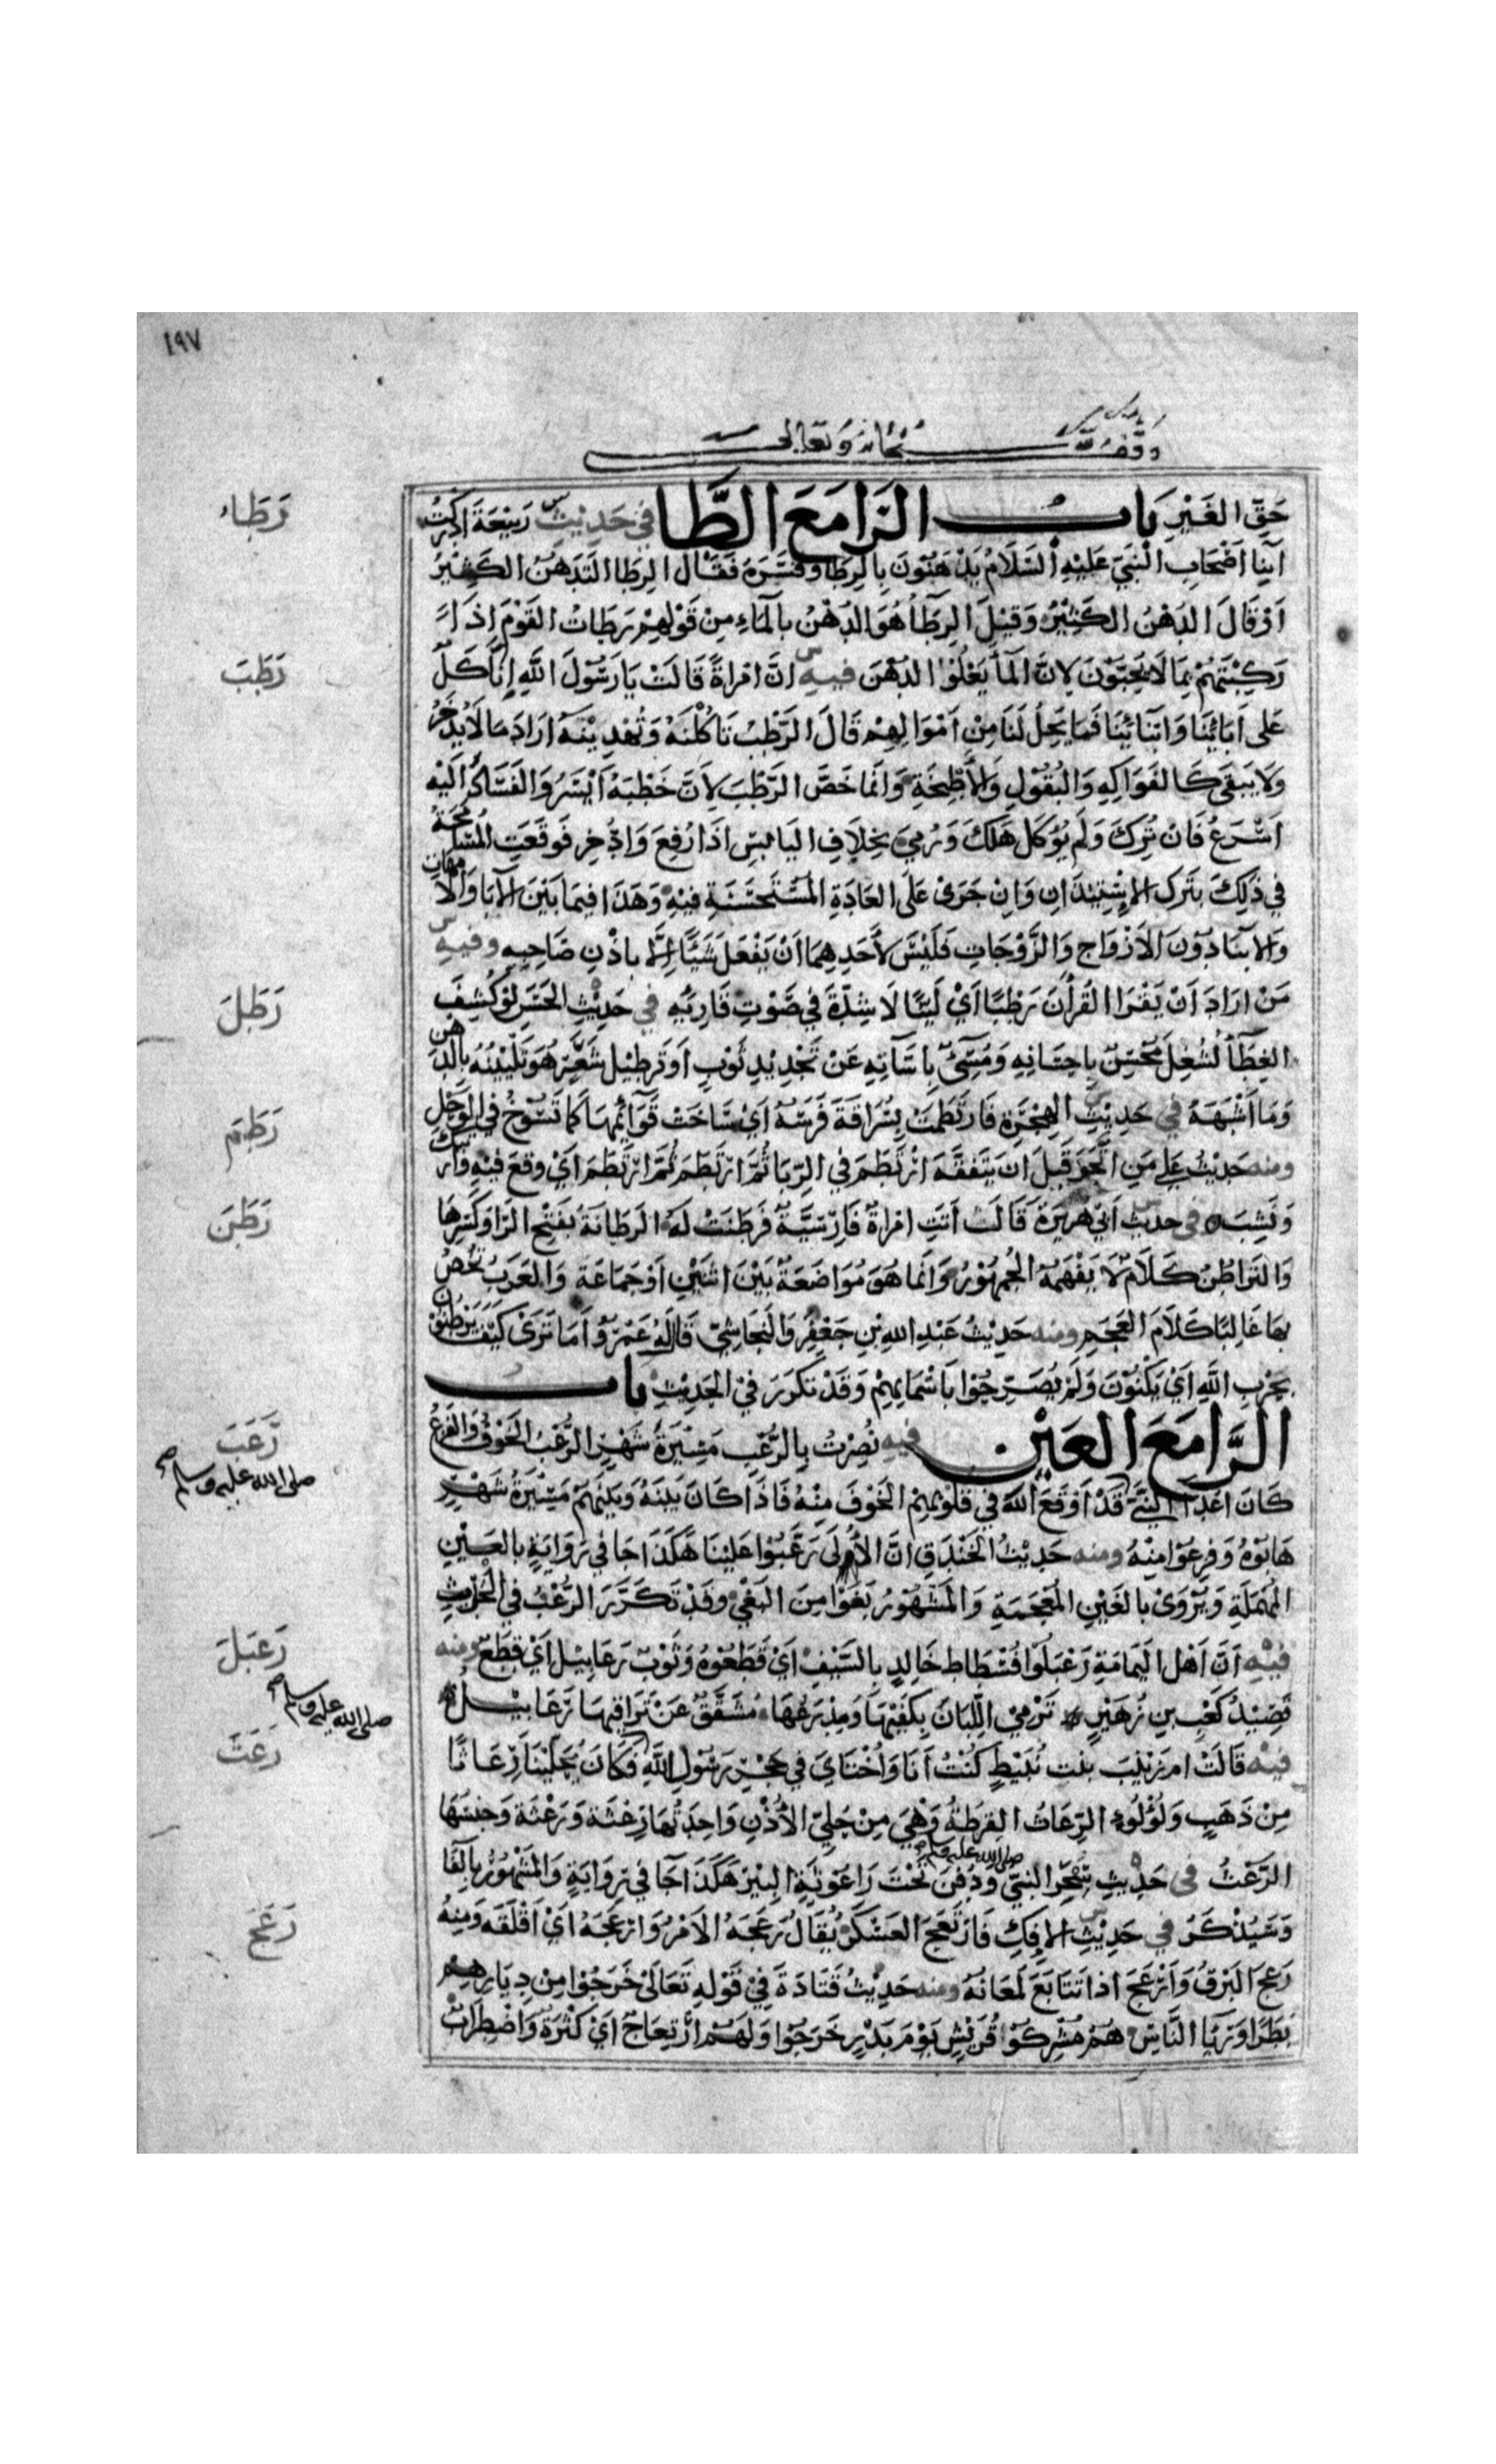 ١٩٧
وقف لله سبحانه وتعالى
حَقِّ الغَيْرِ بَابُ الرَّا مَعَ الطَّا في حَدِيْثِ رَبِيْعَةَ اَدْرَكْتُ
اَبْنَا اَصْحَابِ النَّبِيِّ عَلَيْهِ السَّلَامُ يَدَّهِنُوْنَ بِالرِّطَا وفَسَّرَهُ فَقَالَ الرِّطَا التَّدَهُّنُ الكَثِيْرُ
اَوْ قَالَ الدَّهْنُ الكَثِيْرُ وَقِيْلَ الرِّطَأُ هُوَ الدَّهْنُ بالمَاءِ مِنْ قَوْلِهِمْ رَطَأتُ القَوْمَ اِذَا
رَكِبْتَهُمْ بِمَا لَا يُحِبُّوْنَ لِاَنَّ المَاَ يَعْلُوْا الدُّهْنَ فيه اَنَّ امْرَاَةً قَالَتْ يَا رَسُوْلَ اللهِ اِنَّا كَلٌّ
عَلى اٰبَائِنَا وَاَبْنَائِنَا فَمَا يَحِلُّ لَنَا مِنْ اَمْوَالِهِمْ قَالَ الرَّطْبُ تَاكُلْنَهُ وَتُهْدِيْنَهُ اَرَادَ مَا لَا يُدَّخَرُ
وَلَا يَبْقَى كَالفَوَاكِهِ وَالبُقُوْلِ وَالأَطْبِخَةِ وَاِنَّمَا خَصَّ الرَّطْبَ لِاَنَّ خَطْبَهُ اَيْسَرُ وَالفَسَادُ اِلَيْهِ
اَسْرَعُ فَاِنْ تُرِكَ وَلَمْ يُوْكَلْ هَلَكَ وَرُمِيَ بِخِلَافِ اليَابِسِ اِذَا رُفِعَ وَادُّخِرِ فَوَقَعَتِ المُسَامَحَةُ
في ذَلِكَ بِتَرْكِ الاِسْتِيْذَانِ وَاِنْ جَرَى عَلَى العَادَةِ المُسْتَحْسَنَةِ فِيْهِ وَهَذَا فِيمَا بَيْنَ الآبَا وَالاُمَّهَاتِ
وَالابْنَا دُوْنَ الاَزْوَاجِ وَالزَّوْجَاتِ فَلَيْسَ لأَحَدِهِمَا اَنْ يَفْعَلَ شَيْئًا اِلَّا بِاذْنِ صَاحِبِهِ وفيه
مَنْ اَرَادَ اَنْ يَقْرَا القُرْاٰنَ رَطْبًا اَيْ لَيِّنًا لَا شِدَّةَ في صَوْتِ قَارِئِهِ في حَدِيْثِ الحَسَنِ لَوْ كُشِفَ
الغِطَأُ لَشُغِلَ مُحْسِنٌ بِاحِسَانِهِ وَمُسِيءٌ بِاسَآتِهِ عَنْ تَجْدِيْدِ ثَوْبٍ اَوْ تَرْطِيْلِ شَعْرٍ هُوَ تَلْيِيْنُهُ بالدُّهْنِ
وَمَا اَشْبَهَهُ في حَدِيْثِ الهِجْرَةِ فَارْتَطَمَتْ بِسُرَاقَةَ فَرَسُهُ اَيْ سَاخَتْ قَوَائِمُهَا كَمَا تَسُوْخُ فِي الوَحْلِ
ومنه حَدِيْثُ عَلِيٍّ مَنِ اتَّجَرَ قَبْلَ اَنْ يَتَفَقَّهَ ارْتَطَمَ فِي الرِّبَا ثُمَّ ارْتَطَمَ ثُمَّ ارْتَطَمَ اَيْ وَقَعَ فِيْهِ وَارْتَبَكَ
وَنَشِبَ في حديث اَبِي هُرَيْرَةَ قَالَ اَتَتِ امْرَاةٌ فَارِسِيَّةٌ فَرَطَنَتْ لَهُ الرَّطَانَةُ بفَتْحِ الرَّا وَكَسْرِهَا
وَالتَّرَاطُنُ كَلَامٌ لَا يَفْهَمُهُ الجُمْهُوْرُ وَاِنَّمَا هُوَ مُوَاضَعَةٌ بَيْنَ اثْنَيْنِ اَوْ جَمَاعَةٍ وَالعَرَبُ تَخُصُّ
بِهَا غَالِبًا كَلَامَ العَجَمِ ومنه حَدِيْثُ عَبْدِ اللهِ بْنِ جَعْفَرٍ وَالنَّجَاشِيِّ قَالَ لَهُ عَمْرٌو اَمَا تَرَى كَيْفَ يَرْطُنُوْنَ
بِحِزْبِ اللهِ اَيْ يَكْنُوْنَ وَلَمْ يُصَرِّحُوْا بِاَسْمَائِهِمْ وَقَدْ تَكَرَّرَ فِي الحَدِيْثِ بَابُ
الرَّا مَعَ العَيْنِ فيه نُصِرْتُ بِالرُّعْبِ مَسِيْرَةَ شَهْرٍ الرُّعْبُ الخَوْفُ وَالفَزَعُ
كَانَ اَعْدَا النَّبِيِّ قَدْ اَوْقَعَ اللهُ في قُلُوْبِهِمُ الخَوْفَ مِنْهُ فَاِذَا كَانَ بَيْنَهُ وَبَيْنَهُمْ مَسِيْرَةُ شَهْرٍ
هَابُوْهُ وَفَزِعُوْا مِنْهُ ومنه حَدِيْثُ الخَنْدَقِ اِنَّ الأُولَى رَعَّبُوْا عَلَيْنَا هَكَذَا جَا في رِوَايَةٍ بِالعَيْنِ
المُهْمَلَةِ وَيُرْوَى بِالغَيْنِ المُعْجَمَةِ وَالمَشْهُوْرُ بَغَوْا مِنَ البَغْيِ وَقَدْ تَكَرَّرَ الرُّعْبُ في الحَدِيْثِ
فيه اَنَّ اَهْلَ اليَمَامَةِ رَعْبَلُوْا فُسْطَاطَ خَالِدٍ بِالسَّيْفِ اَيْ قَطَّعُوْهُ وَثَوْبٌ رَعَابِيْلُ اَيْ قِطَعٌ ومنه
قَصِيْدُ كَعْبِ بْنِ زُهَيْرٍ تَرْمِيْ اللَّبَانَ بِكَفَّيْهَا وَمِدْرَعُهَا مُشَقَّقٌ عَنْ تَرَاقِيْهَا رَعَابِيْلُ
فيه قَالَتْ ام زَيْنَبَ بنت نُبَيْطٍ كُنْتُ اَنَا وَاُخْتَايَ في حِجْرِ رَسُوْلِ اللهِ فَكَانَ يُحَلِّيْنَا رِعَاثًا
مِنْ ذَهَبٍ وَلُؤْلُوءٍ الرِّعَاثُ القِرَطَةُ وَهِيَ مِنْ حِلِيِّ الأُذْنِ وَاحِدَتُهَا رَعْثَة وَرَعَثَة وَجِنْسُهَا
الرَّعْثُ في حَدِيْثِ سِحْرِ النَّبِيِّ صلى الله عليه وسلم وَدُفِنَ تَحْتَ رَاعُوْثَةِ البِئْرِ هَكَذَا جَا في رِوَايَةٍ وَالمَشْهُوْرُ بِالفَا
وَسَيُذْكَرُ في حَدِيْثِ الاِفْكِ فَارْتَعَجَ العَسْكَرُ يُقَالُ رَعَجَهُ الاَمْرُ وَارْعَجَهُ اَيْ اَقْلَقَه وَمِنْهُ
رَعَجَ البَرْقُ وَاَرْعَجَ اِذا تَتَابَعَ لَمَعَانُهُ ومنه حَدِيْثُ قَتَادَةَ فِيْ قَوْلِهِ تَعَالَى خَرَجُوْا مِنْ دِيَارِهِمْ
بَطَرًا وَرِيَا النَّاسِ هُمْ مُشْرِكُوْا قُرَيْشٍ يَوْمَ بَدْرٍ خَرَجُوْا وَلَهُمْ ارْتِعَاجٌ اَيْ كَثْرَةٌ وَاضْطِرَابٌ
رَطَاء
رَطَبَ
رَطَلَ
رَطَمَ
رَطَنَ
رَعَبَ
صلى الله عليه وسلم
رَعبَلَ
صلى الله عليه وسلم
رَعَثَ
رَعَجَ